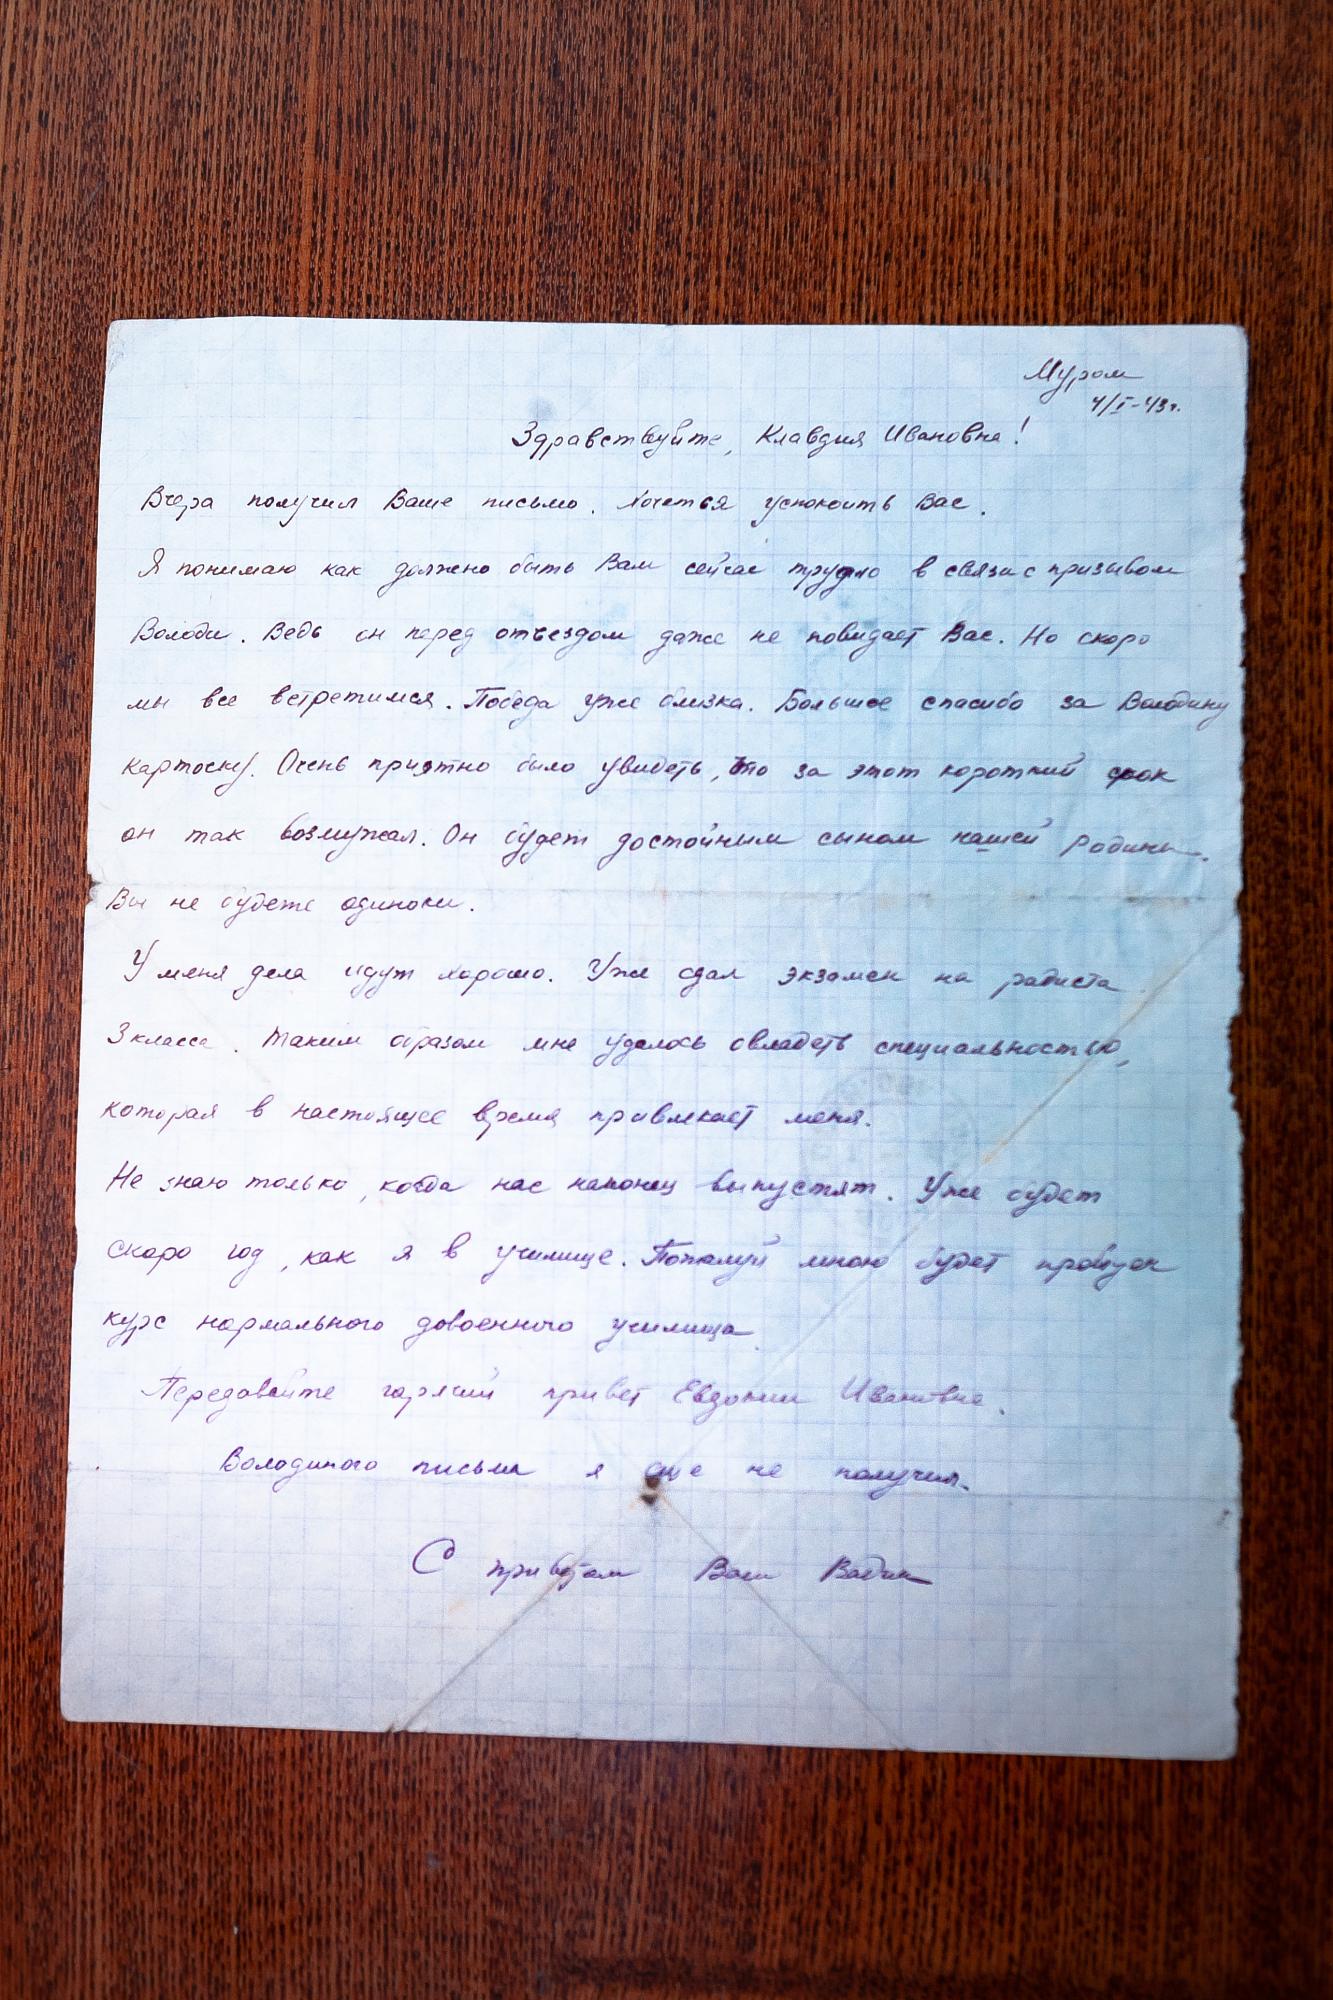 Муром
4/I-43г.
Здравствуйте, Клавдия Ивановна!
Вчера получил Ваше письмо. Хочется успокоить Вас.
Я понимаю как должно быть Вам сейчас трудно в связи с призывом
Володи. Ведь он перед отъездом даже не повидает Вас. Но скоро
мы все встретимся. Победа уже близка. Большое спасибо за Володину
карточку. Очень приятно было увидеть, что за этот короткий срок
он так возмужал. Он будет достойным сыном нашей Родины.
Вы не будете одиноки.
У меня дела идут хорошо. Уже сдал экзамен на радиста
3 класса. Таким образом мне удалось овладеть специальностью,
которая в настоящее время привлекает меня.
Не знаю только, когда нас наконец выпустят. Уже будет
скоро год, как я в училище. Пожалуй мною будет пройден
курс нормального довоенного училища.
Передавайте горячий привет Евдокии Ивановне.
Володиного письма я еще не получил.
С приветом Ваш Вадим